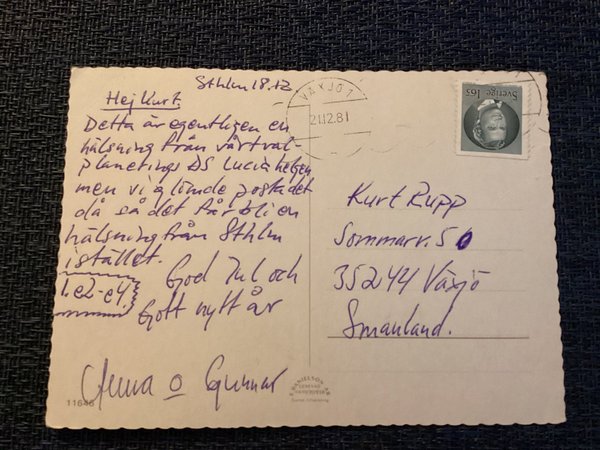 Sthlm 18.12
Hej Kurt,
Detta är egentligen en
hälsning från vårt val-
planerings DS Luciahelgen
men vi glömde posta det
då så det får bli en
hälsning från Sthlm
istället.
1.e2-e4.
God Jul och
Gott nytt år
Anna o Gunnar
11646
VÄXJÖ 1
21.12.81
Sverige 165
Kurt Rupp
Sommarv. 50
35244 Växjö
Småland.